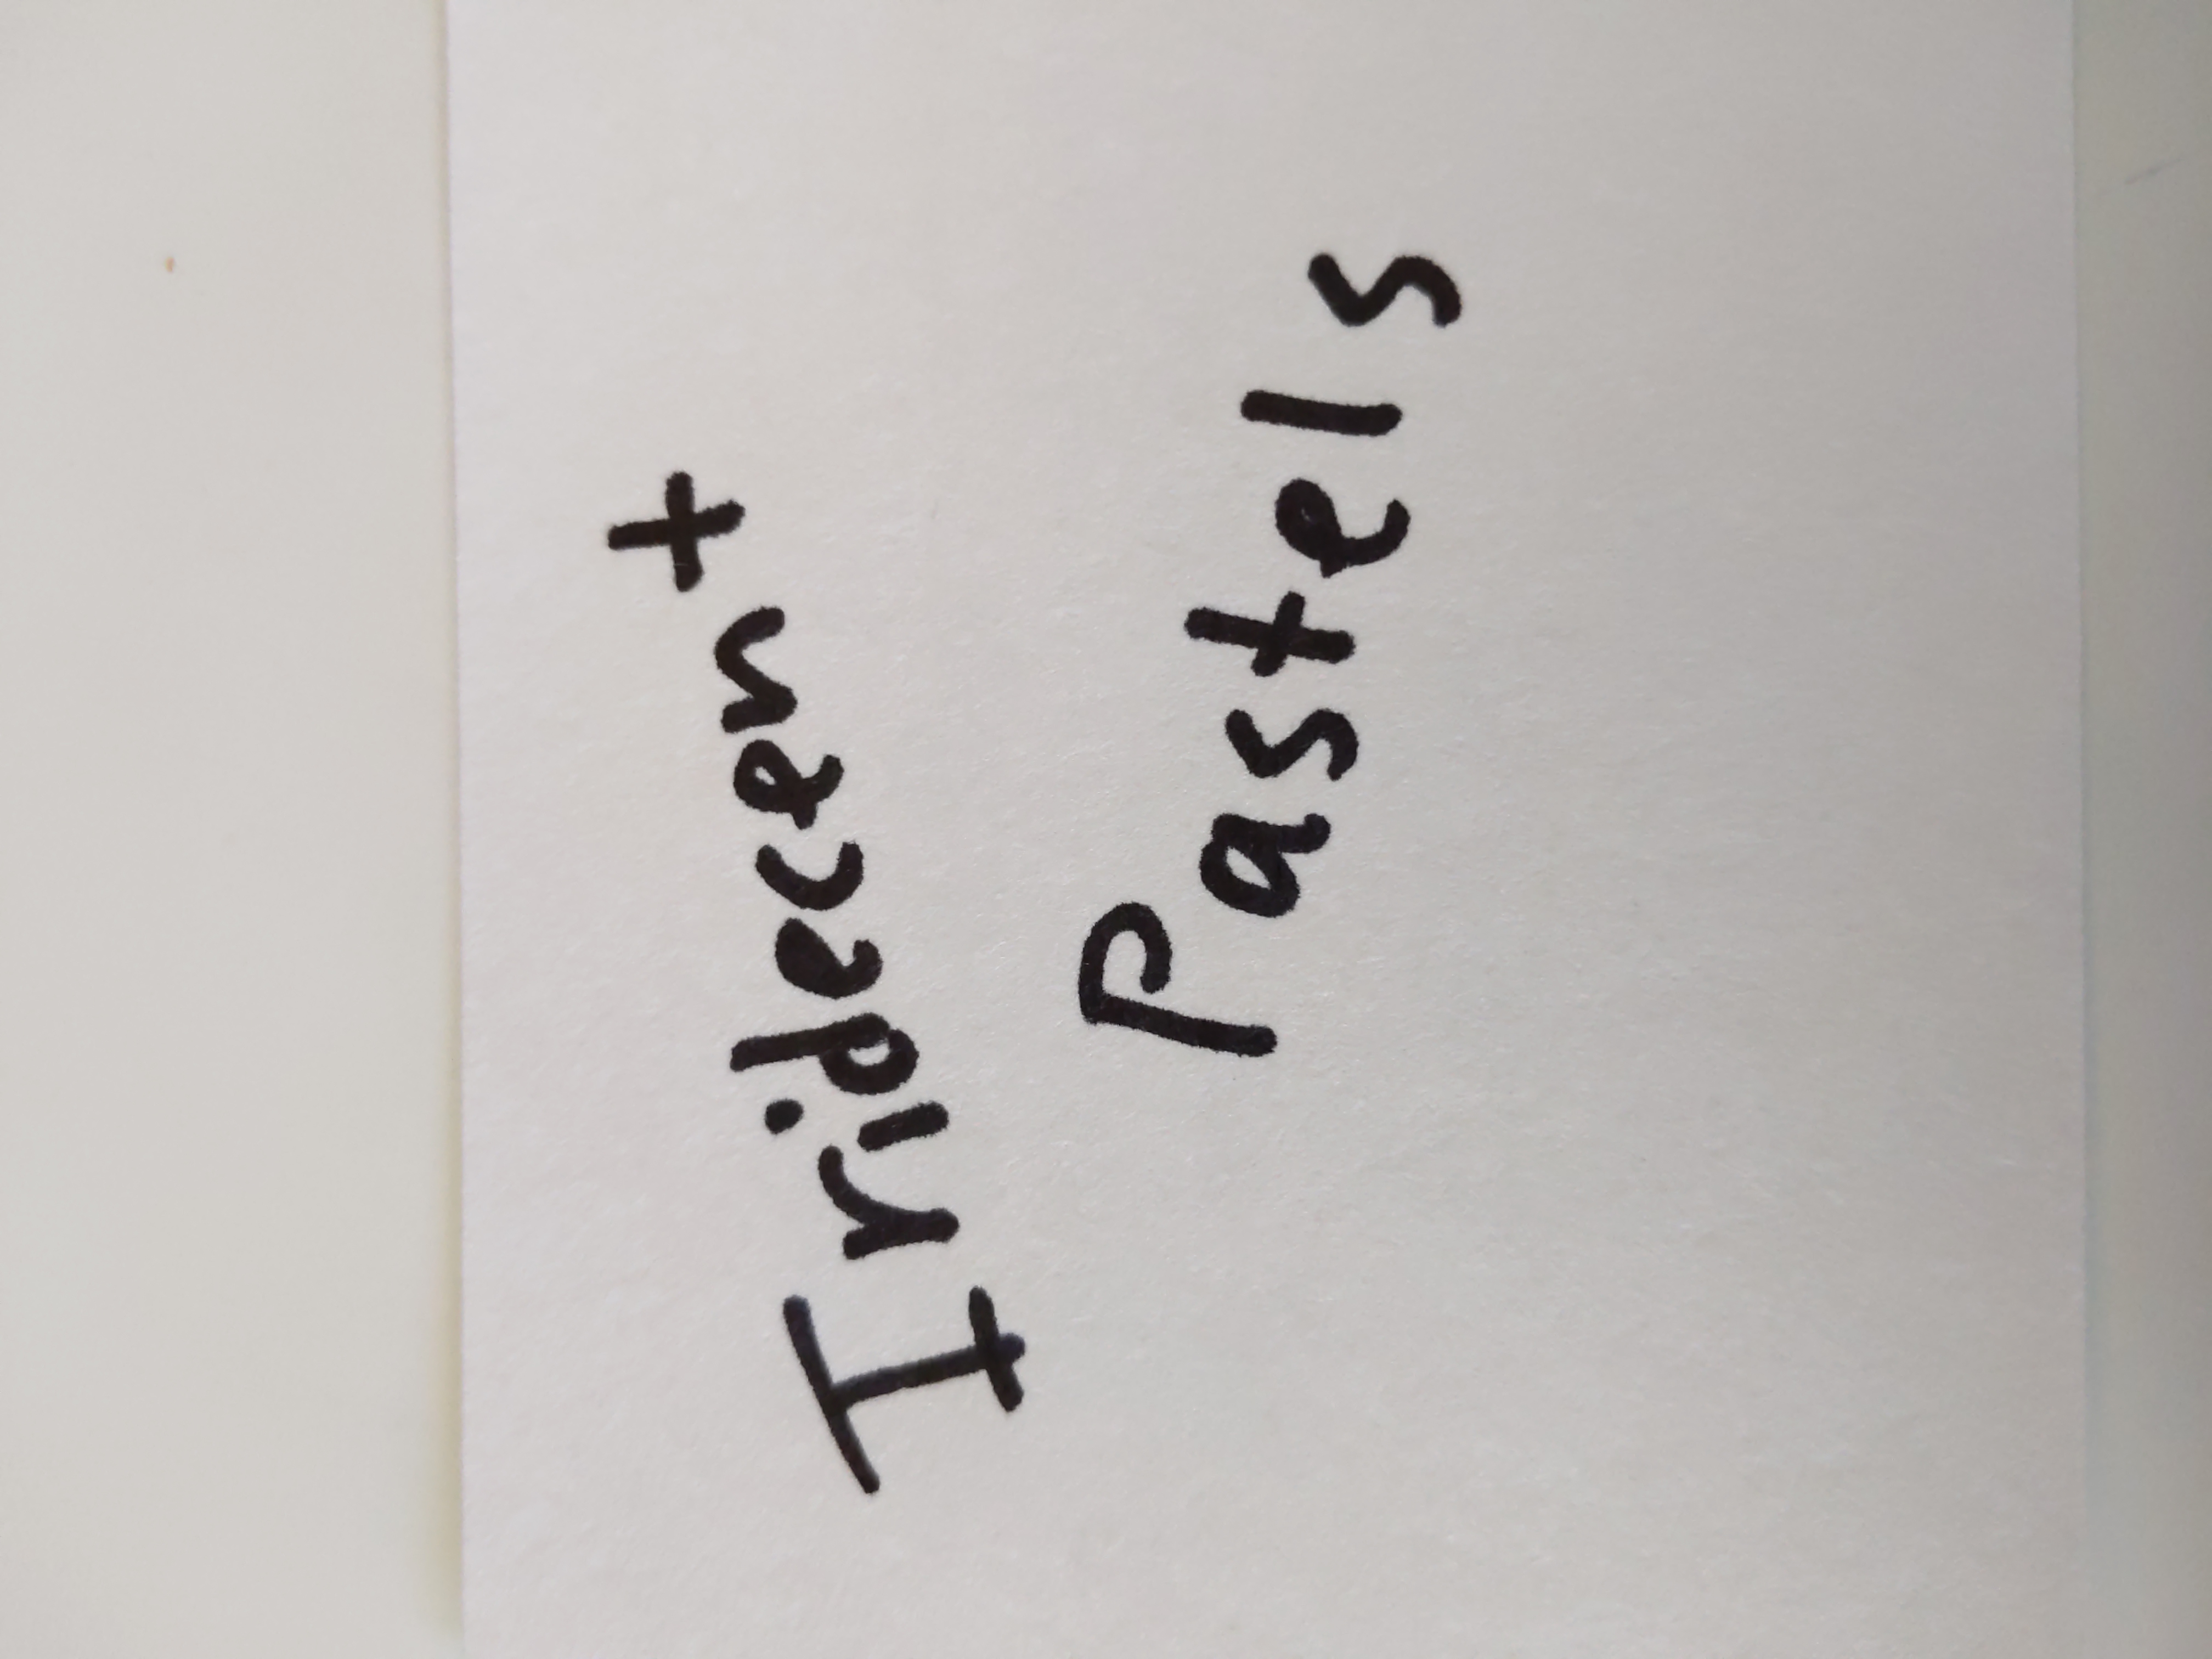 Iridecent
Pastels